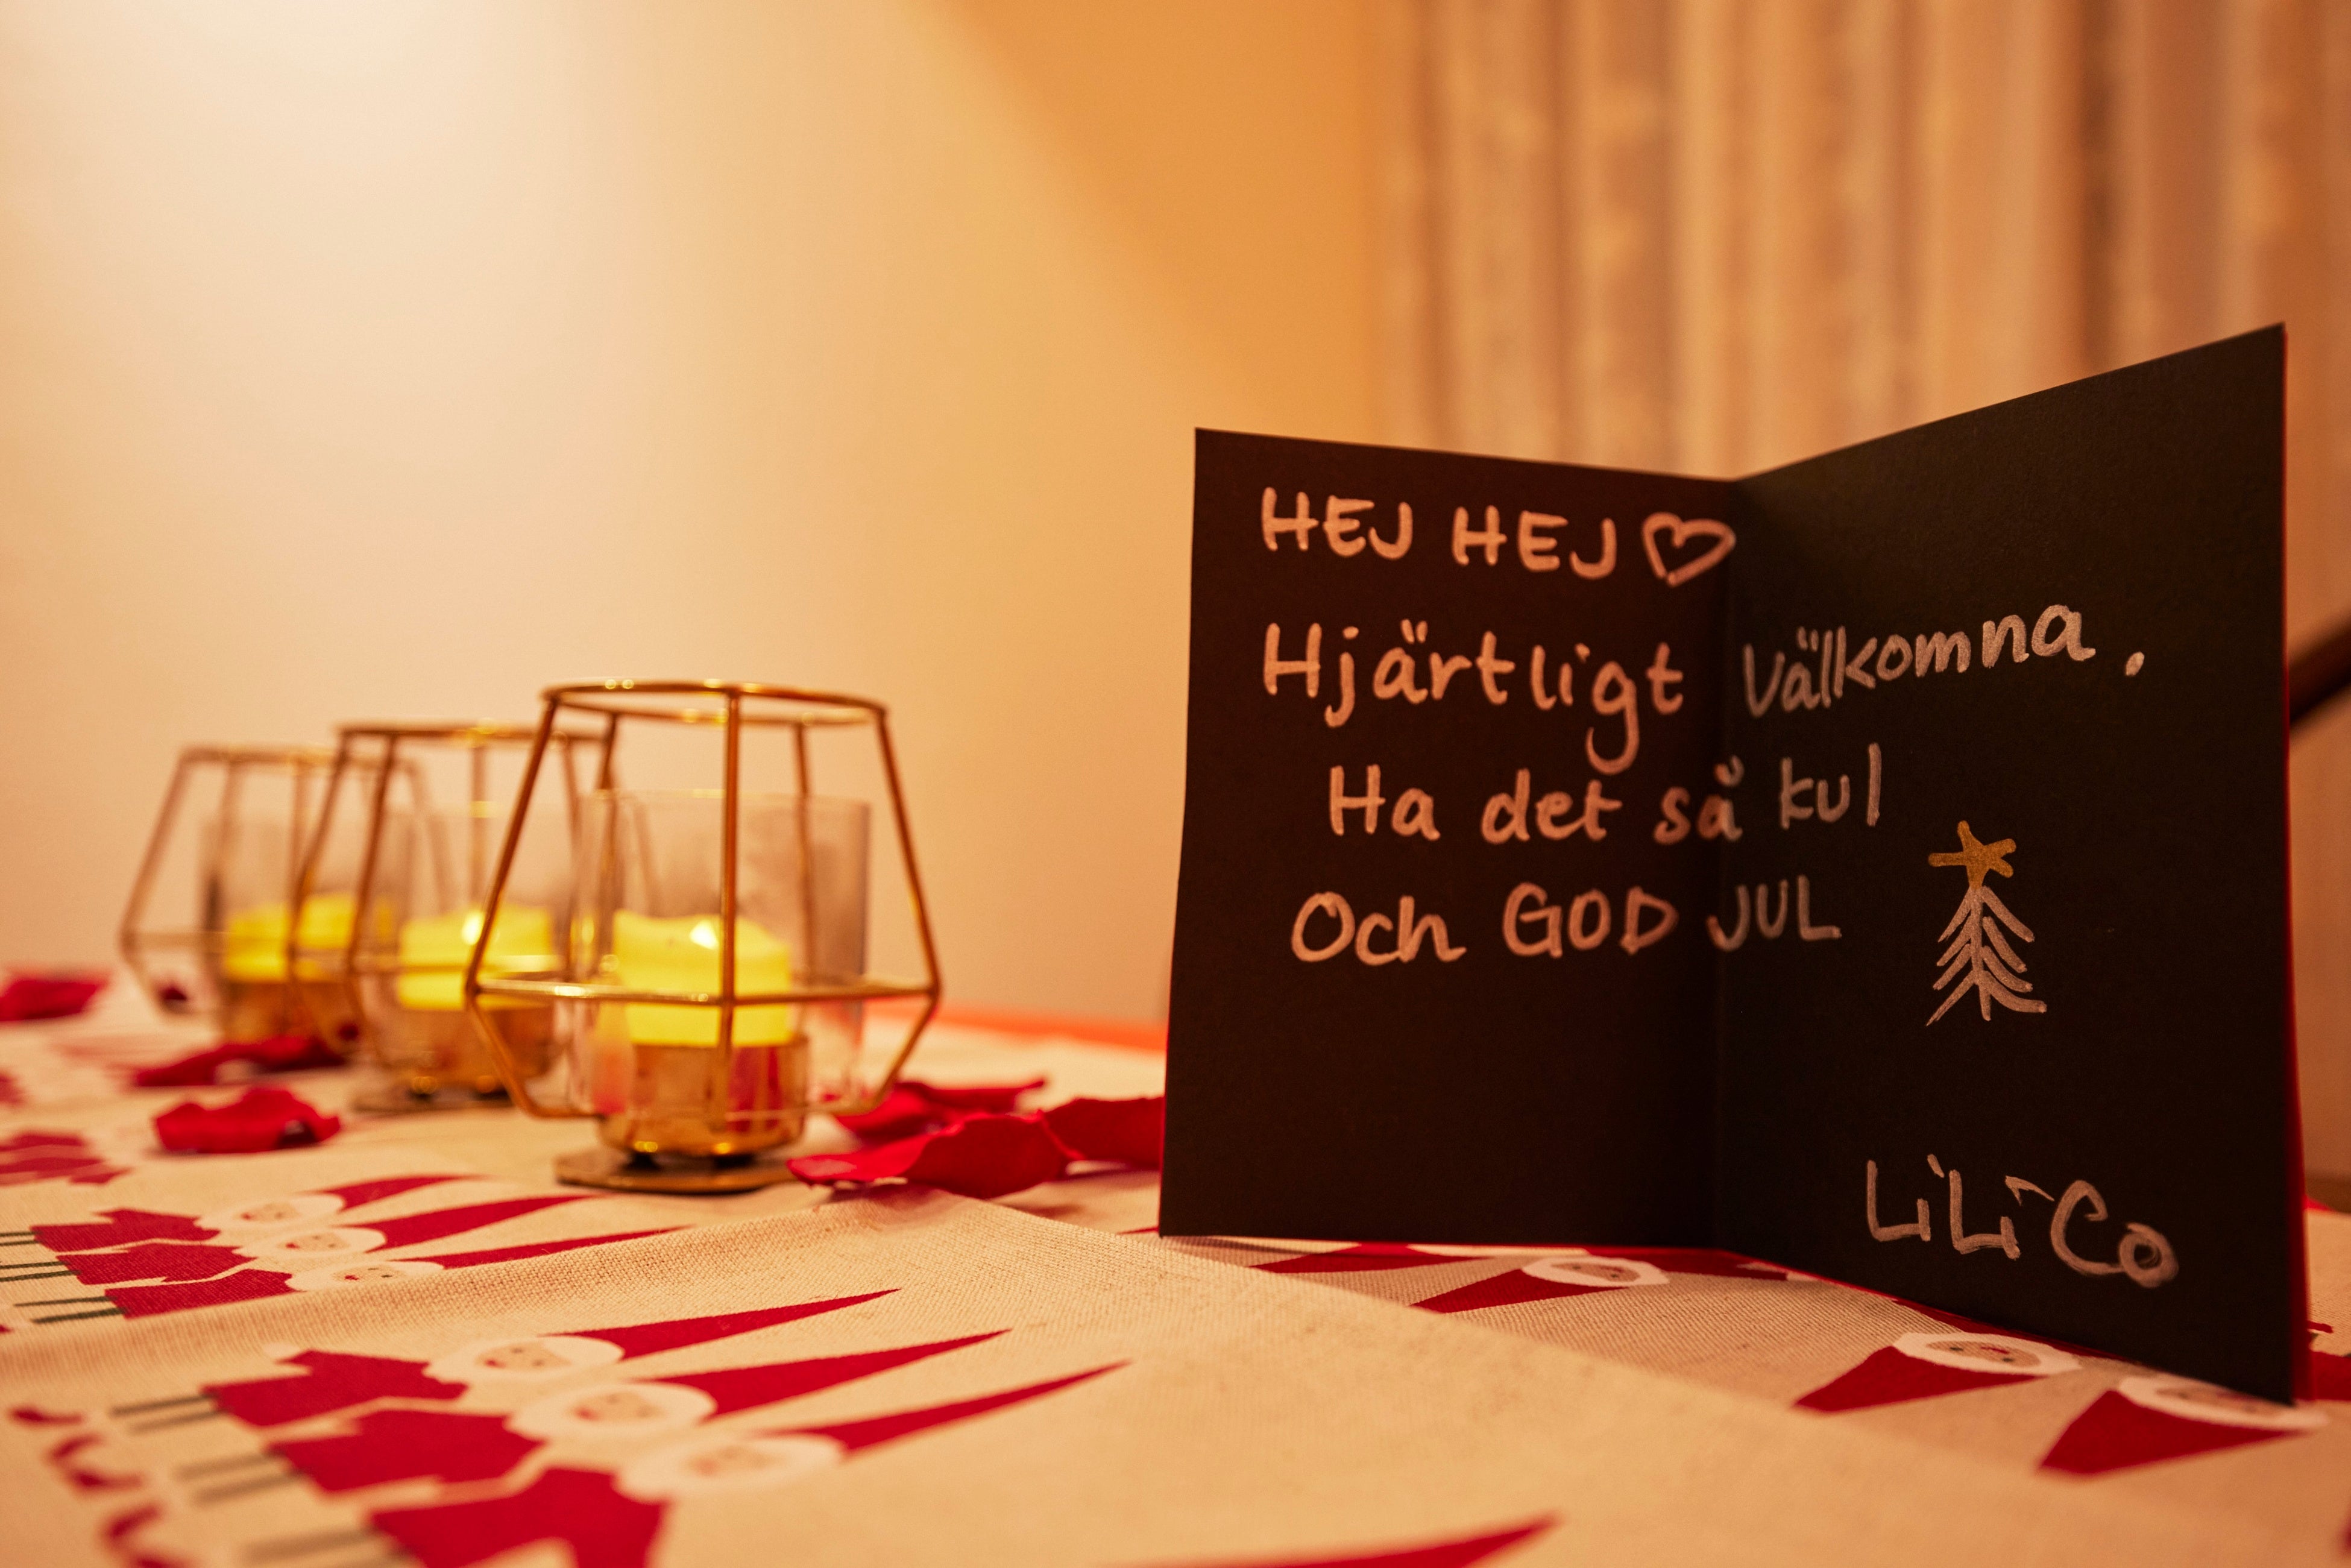 HEJ HEJ♡
Hjärtligt Välkomna.
Ha det så kul
Och GOD JUL
LiLiCo